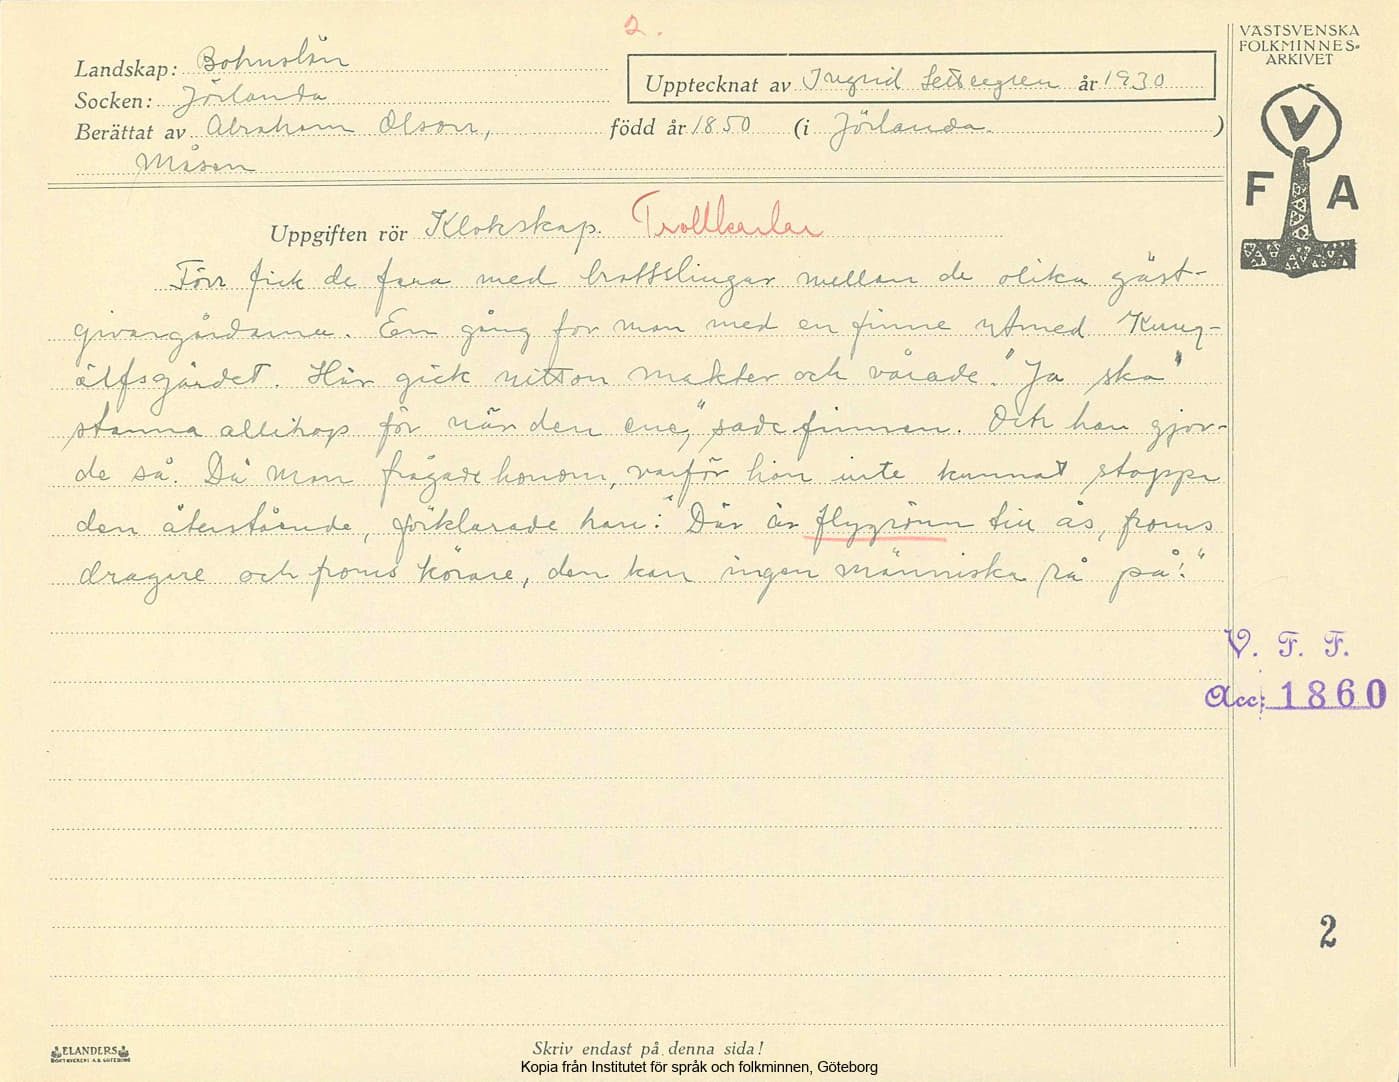 2.
VÄSTSVENSKA
FOLKMINNES-
ARKIVET
Landskap: Bohuslän
Upptecknat av Ingrid år 1930
Socken: Jörlanda
Berättat av Abraham Olson, född år 1850 (i Jörlanda. )
Måsen
V
F A
Uppgiften rör Klokskap. Trollkarlar
Förr fick de fara med brottslingar mellan de olika gäst-
givargårdarna. En gång for man med en finne utmed Kung-
älfsgärdet. Här gick nitton makter och vårade. "Ja ska"
stanna allihop för när den ene," sade finnen. Och han gjor-
de så. Då man frågade honom, varför han inte kunnat stoppa
den återstående, förklarade han: "Där är flygrönn till ås, froms
dragare och froms körare, den kan ingen människa rå på!"
V. F. F.
Acc: 1860
2
ELANDERS
BOKTRYCKERI A.B. GÖTEBORG
Skriv endast på denna sida!
Kopia från Institutet för språk och folkminnen, Göteborg